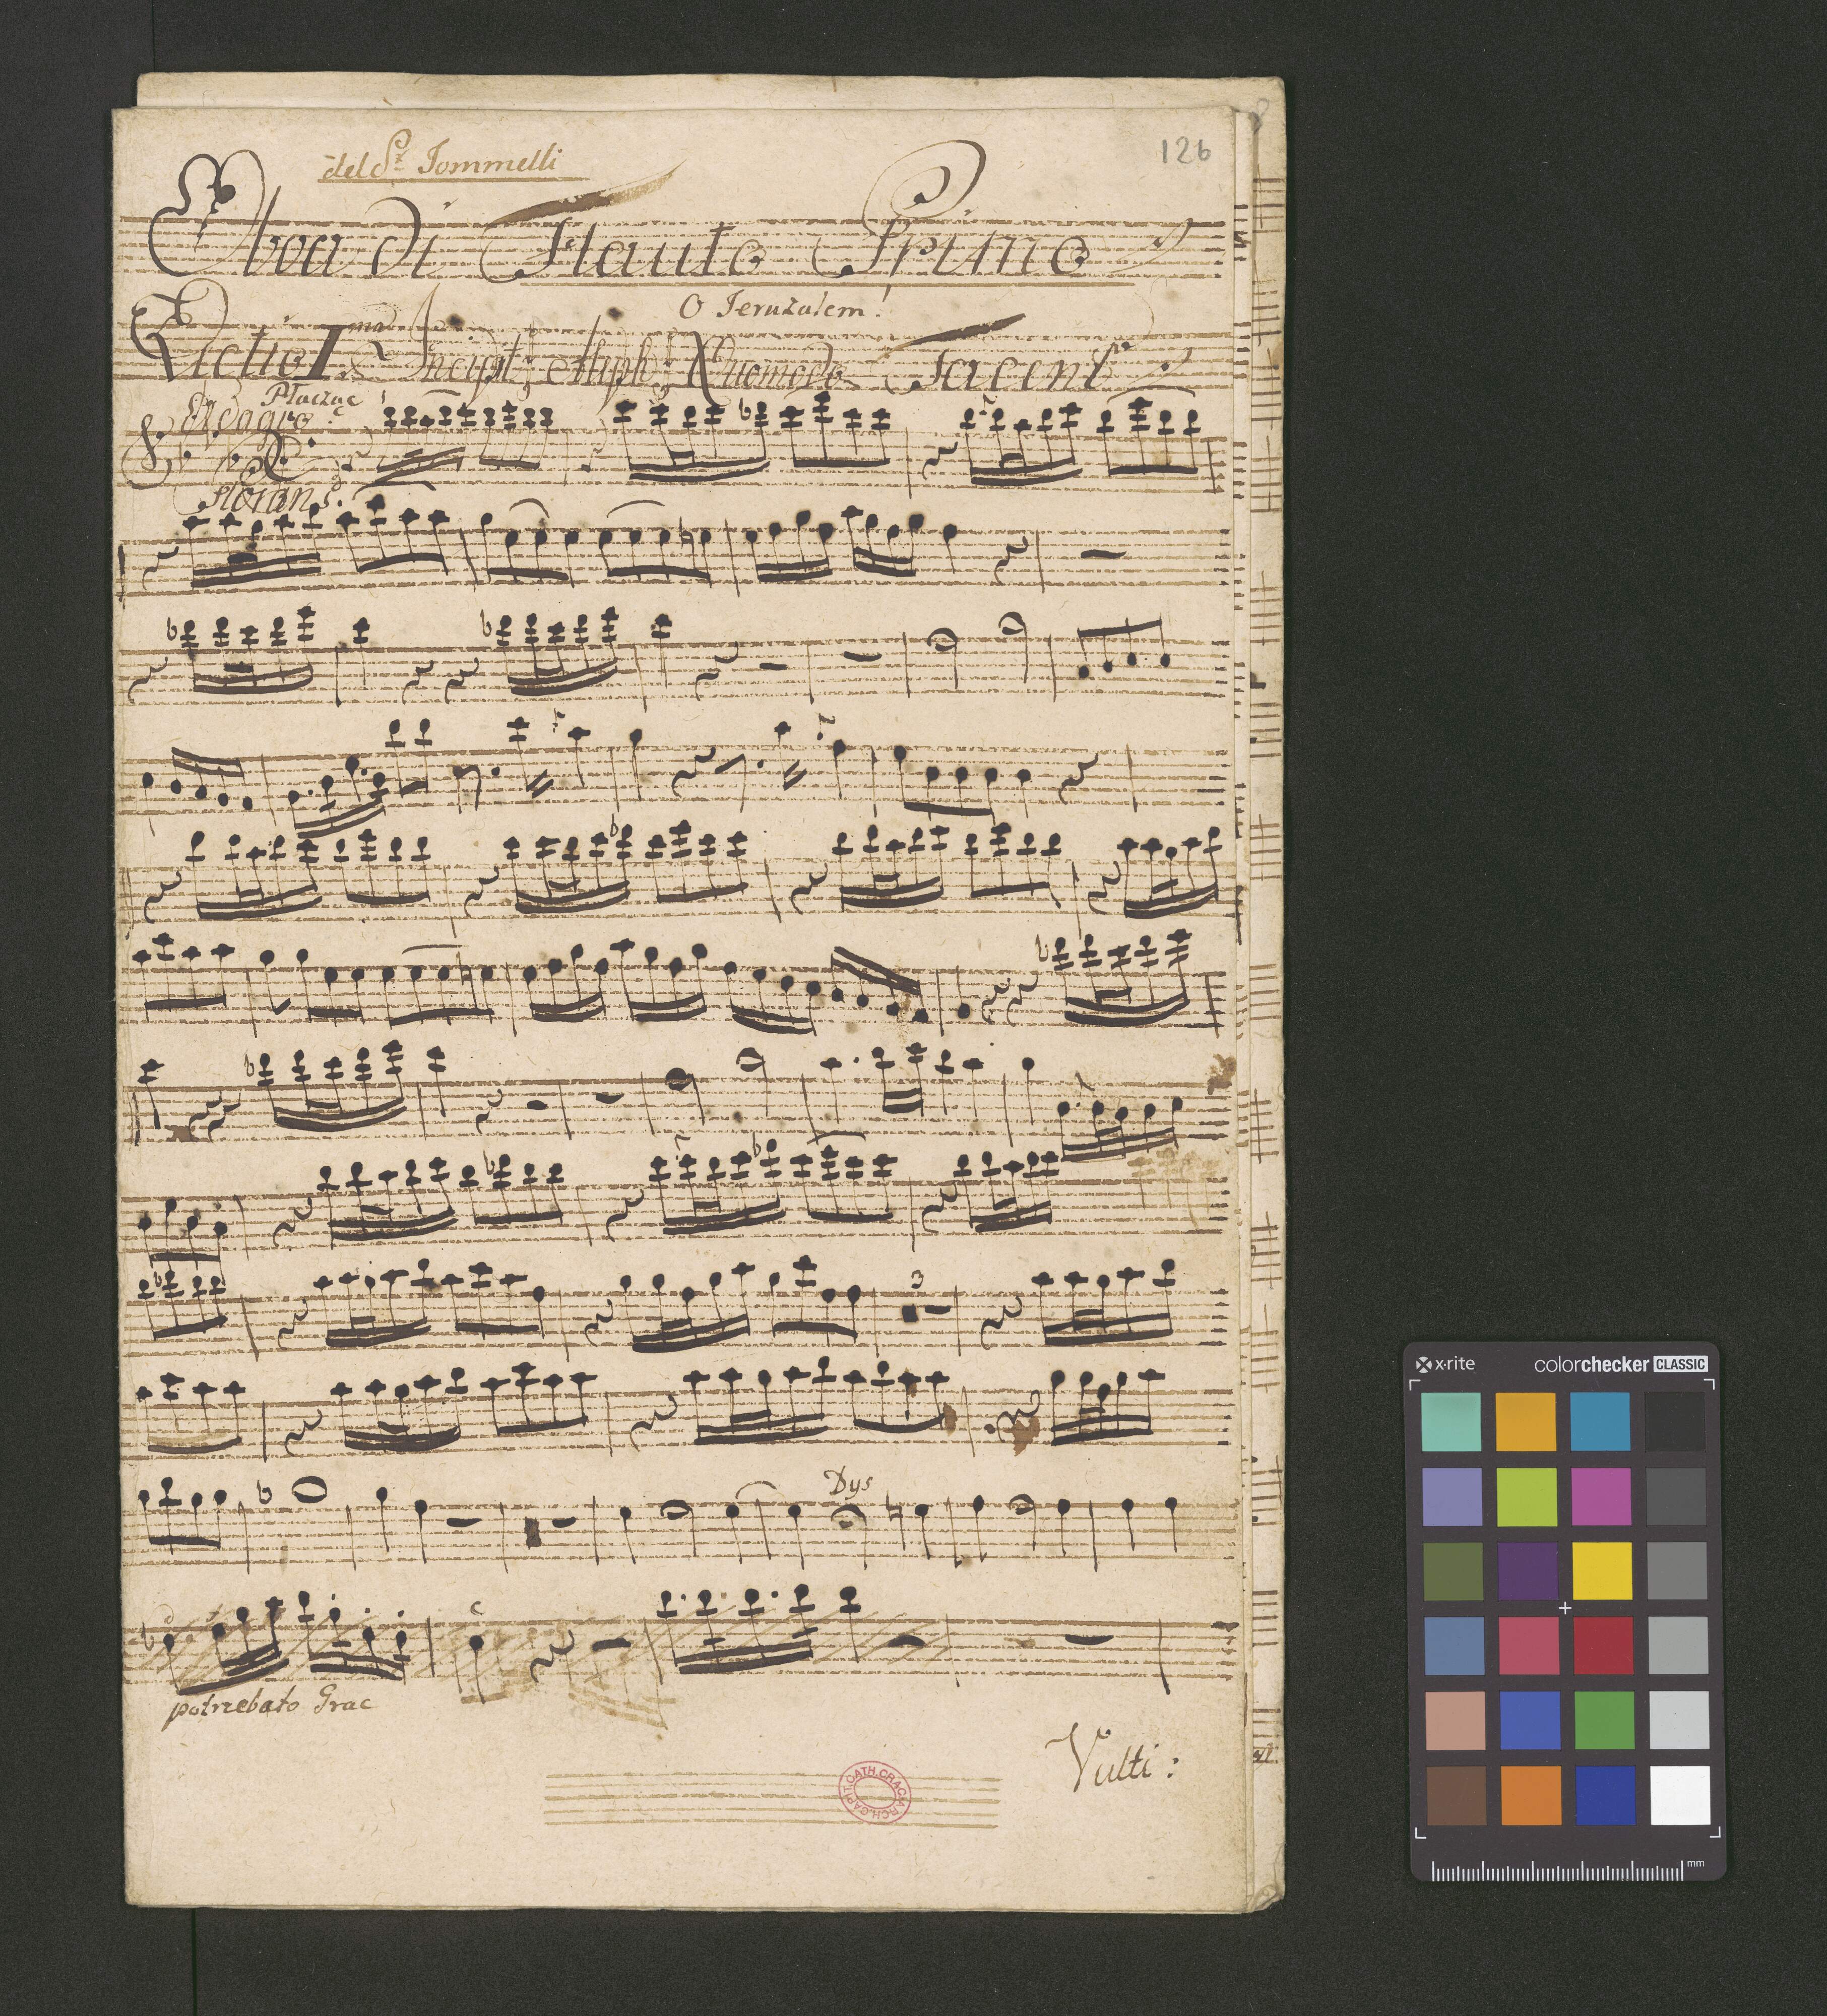 del Sr Jommelli
126
Oboa di Flauto Primo
O Jeruzalem!
Lectio I ma Incipit Aleph Quomodo
Płacząc
Plorans
Dys
3
potrzebato Grac
Vulti:
ARCH.CAPIT.CATH.CRAC
x·rite colorchecker CLASSIC
mm